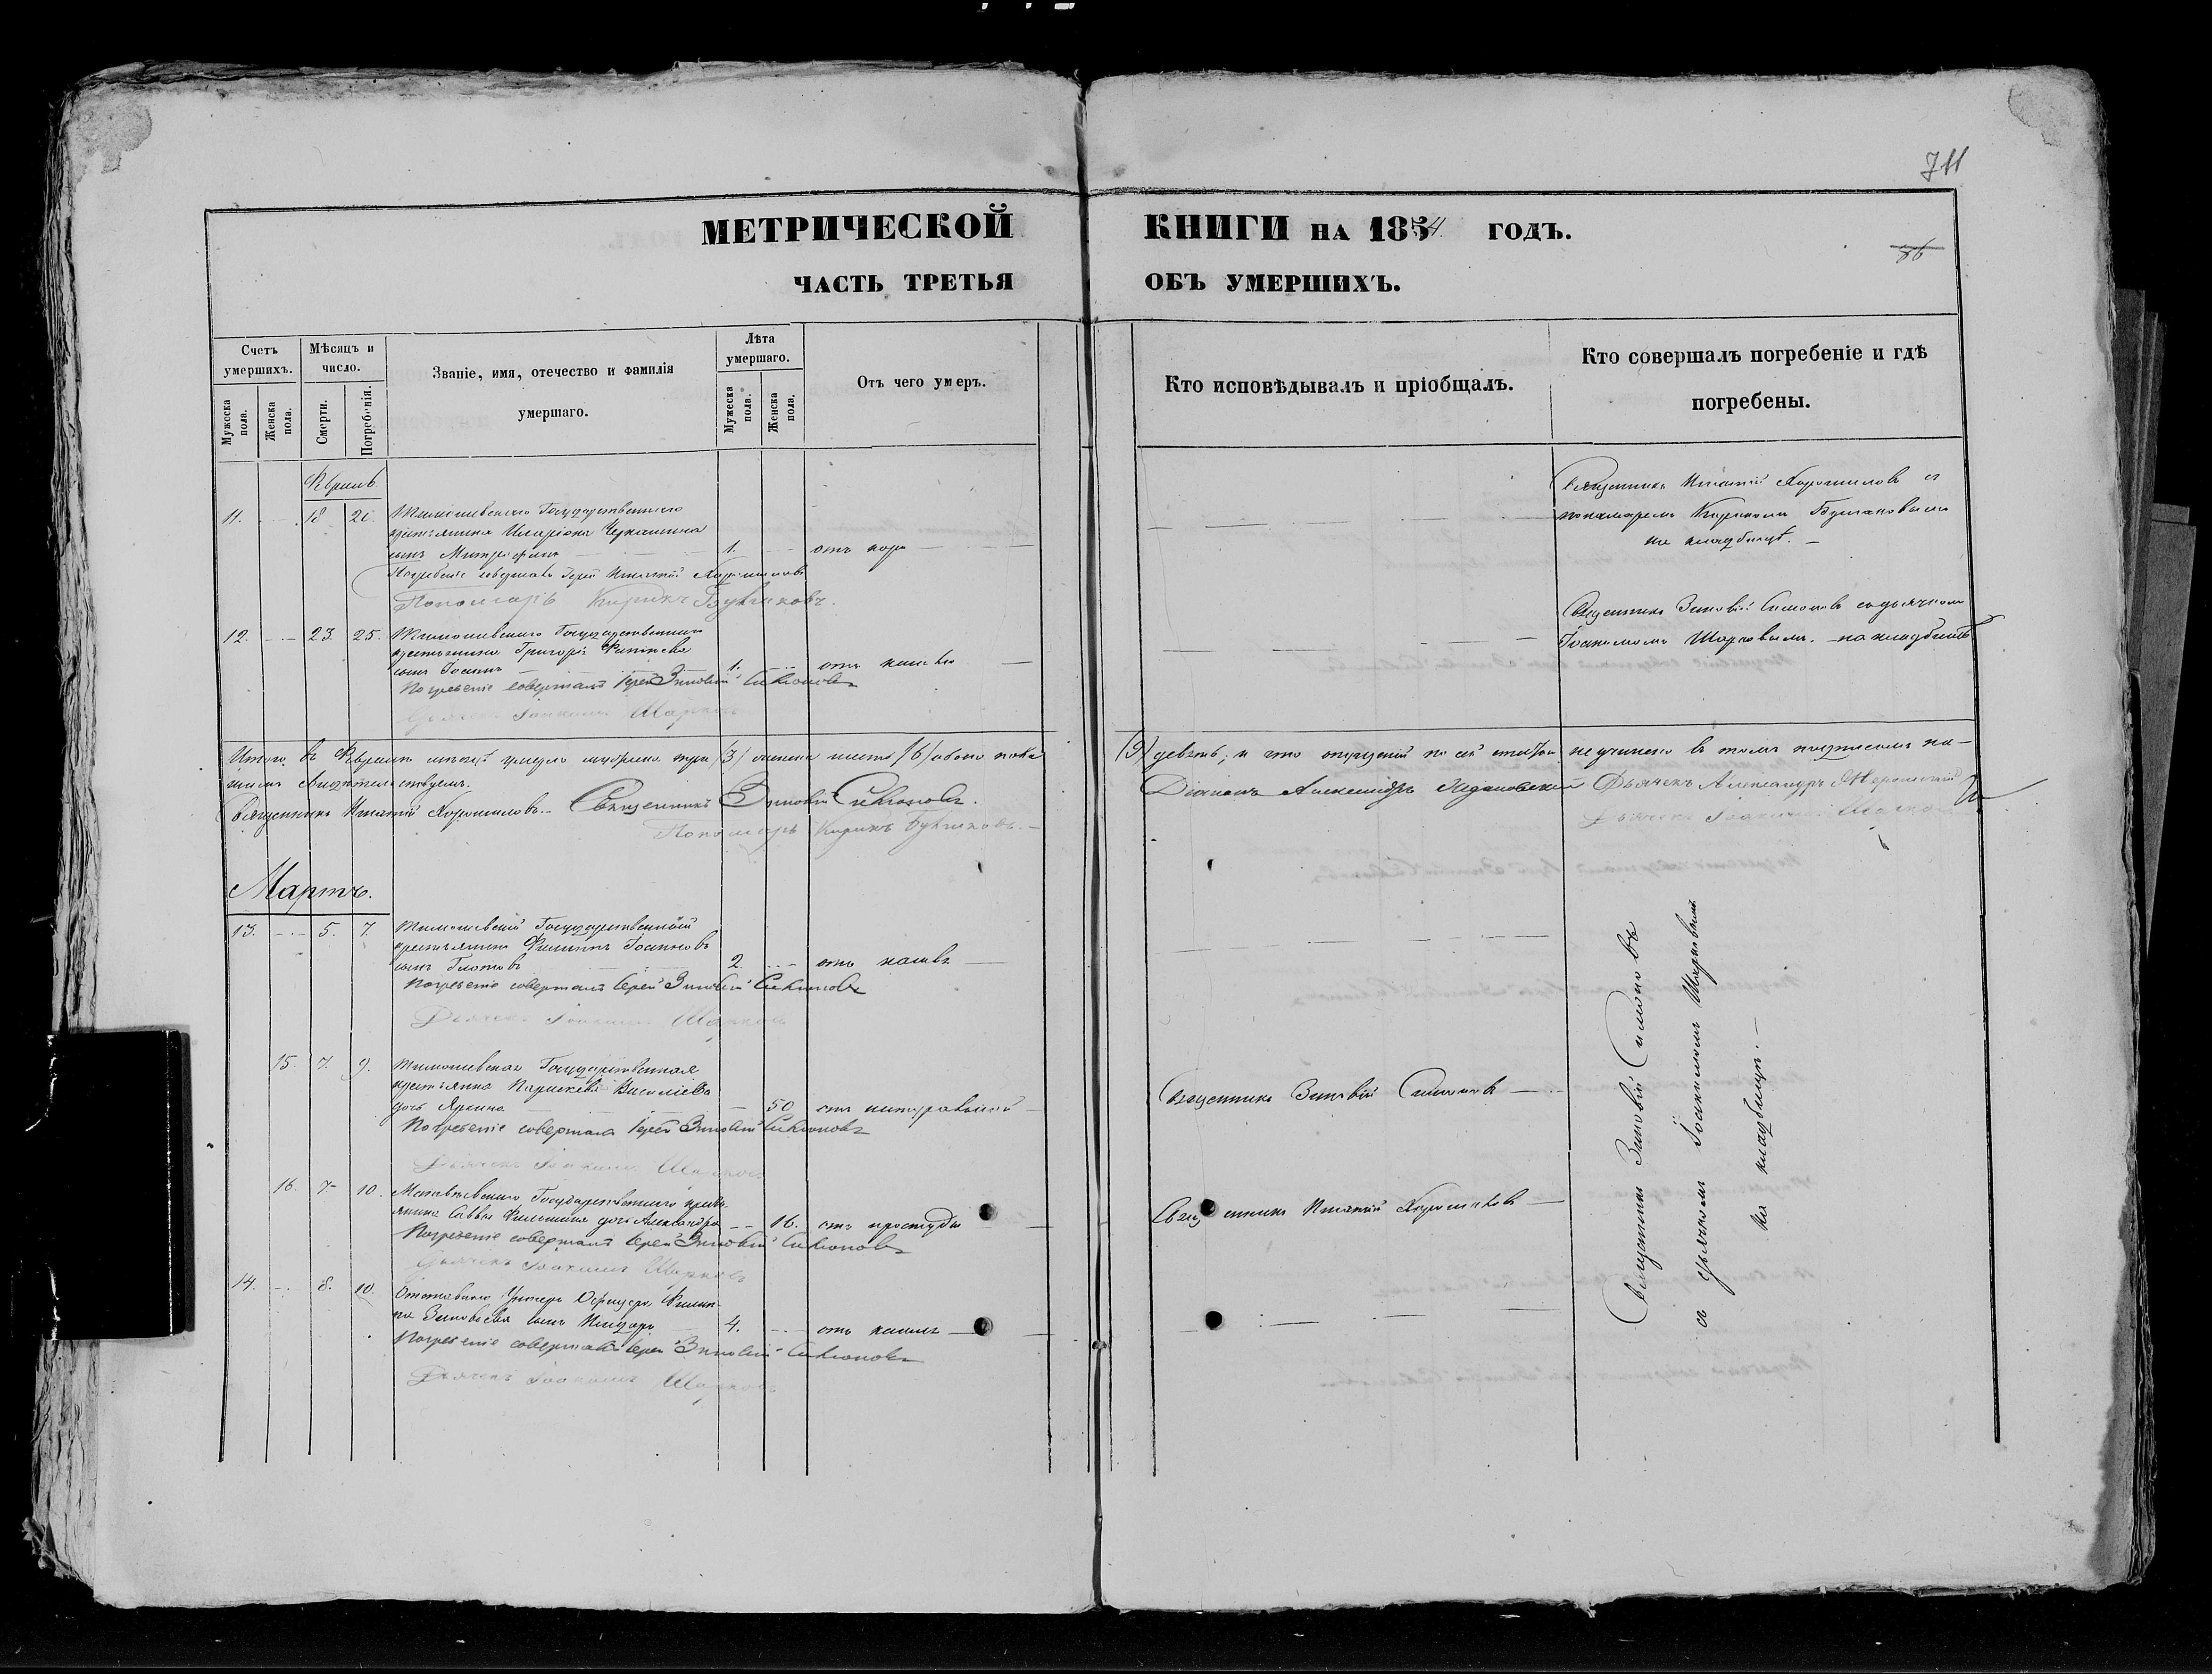 711
МЕТРИЧЕСКОЙ КНИГИ НА 1854 ГОДЪ.
86
ЧАСТЬ ТРЕТЬЯ ОБЪ УМЕРШИХЪ.
Счетъ умершихъ.
Мужеска пола.
Женска пола.
Мѣсяцъ и число.
Смерти.
Погребенія.
Званіе, имя, отечество и фамилія умершаго.
Лѣта умершаго.
Мужеска пола.
Женска пола.
Отъ чего умеръ.
Кто исповѣдывалъ и пріобщалъ.
Кто совершалъ погребеніе и гдѣ погребены.
11. 18 20. Государственнаго
крестьянина Иларіона
сынъ Митрофанъ 1. отъ кори
Погребеніе совершалъ Іерей Игнатій Хорошиловъ
Пономарь Кирикъ
Священникъ Игнатій Хорошиловъ съ
пономаремъ Кирикомъ
на кладбищѣ.
12. 23. 25. Государственнаго
крестьянина Григорія
сынъ Іоаннъ 1. отъ кашлю
Погребеніе совершалъ Іерей Зиновій Симоновъ
Дьячекъ Іоакимъ Шарковъ
Священникъ Зиновій Симоновъ съ дьячкомъ
Іоакимомъ Шарковымъ на кладбищѣ
Итого въ Февралѣ мѣсяцѣ умерло мужеска три (3) женска шесть (6) обоего пола (9) девять; и что
Священникъ Игнатій Хорошиловъ. Священникъ Зиновій Симоновъ. Діаконъ Александръ Дьячекъ Александръ
Пономарь Кирикъ Дьячекъ Іоакимъ Шарковъ
Мартъ.
13. 5. 7. Государственный
крестьянинъ Филиппъ Іоанновъ
сынъ 2. отъ кашлю
Погребеніе совершалъ Іерей Зиновій Симоновъ
Дьячекъ Іоакимъ Шарковъ
15. 7. 9. Государственная
крестьянка Параскева Василіева
дочь 50 отъ
Погребеніе совершалъ Іерей Зиновій Симоновъ
Дьячекъ Іоакимъ Шарковъ
Священникъ Зиновій Симоновъ
16. 7 10. Государственнаго
Саввы дочь Александра 16. отъ простуды
Погребеніе совершалъ Іерей Зиновій Симоновъ
Дьячекъ Іоакимъ Шарковъ
Священникъ Игнатій Хорошиловъ
14. 8. 10. Отставнаго Унтеръ Офицера
Зиновьева сынъ 4. отъ кашлю
Погребеніе совершалъ Іерей Зиновій Симоновъ
Дьячекъ Іоакимъ Шарковъ
Священникъ Зиновій Симоновъ
съ дьячкомъ Іоакимомъ Шарковымъ
на кладбищѣ.